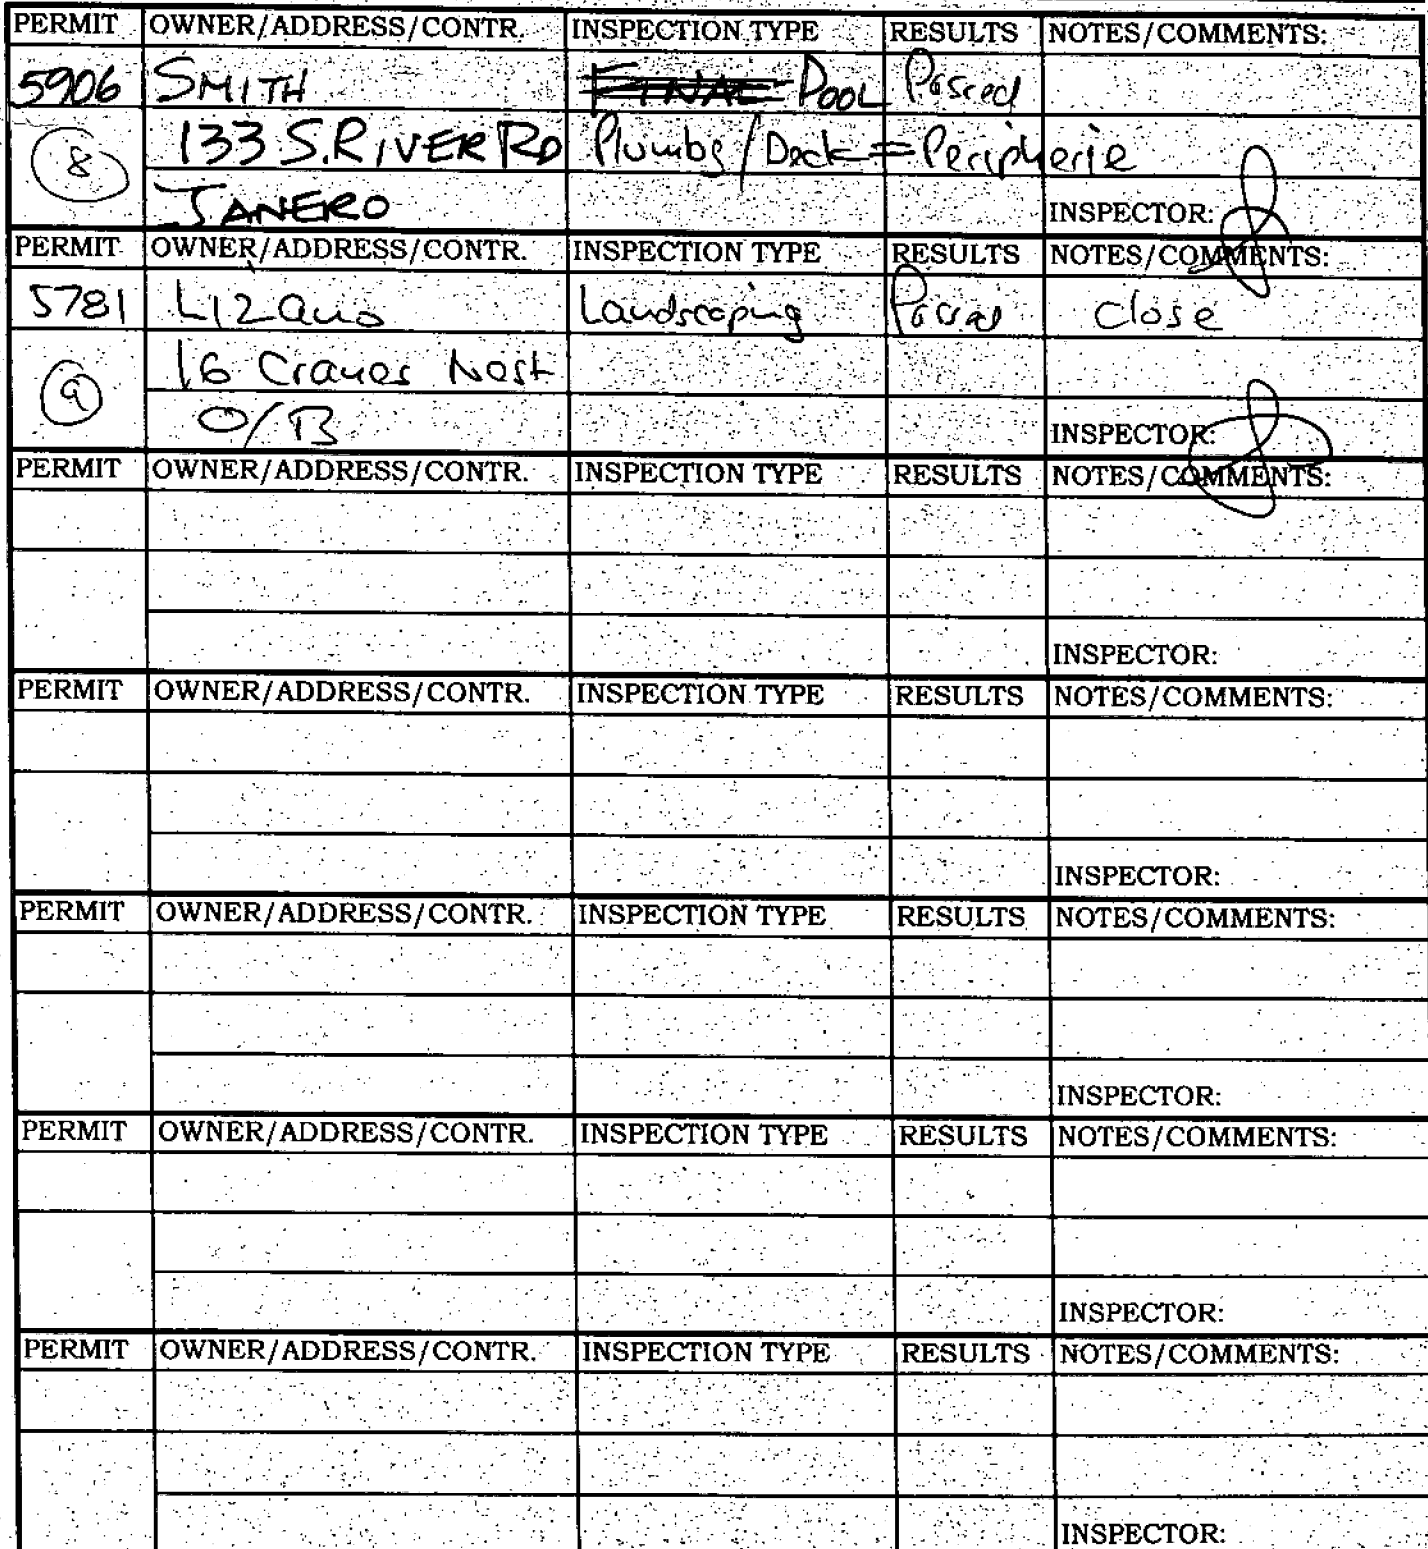 PERMIT OWNER/ADDRESS/CONTR. INSPECTION TYPE RESULTS NOTES/COMMENTS:
5906 SMITH FINAL POOL Passed
8 133 S. RIVER RD Plumbg/Deck = Peripherie
JANERO INSPECTOR:
PERMIT OWNER/ADDRESS/CONTR. INSPECTION TYPE RESULTS NOTES/COMMENTS:
5781 Lizano Landscaping Passed close
9 16 Cranes Nest
O/B INSPECTOR:
PERMIT OWNER/ADDRESS/CONTR. INSPECTION TYPE RESULTS NOTES/COMMENTS:
INSPECTOR:
PERMIT OWNER/ADDRESS/CONTR. INSPECTION TYPE RESULTS NOTES/COMMENTS:
INSPECTOR:
PERMIT OWNER/ADDRESS/CONTR. INSPECTION TYPE RESULTS NOTES/COMMENTS:
INSPECTOR:
PERMIT OWNER/ADDRESS/CONTR. INSPECTION TYPE RESULTS NOTES/COMMENTS:
INSPECTOR:
PERMIT OWNER/ADDRESS/CONTR. INSPECTION TYPE RESULTS NOTES/COMMENTS:
INSPECTOR: